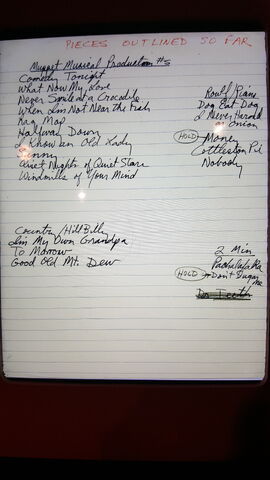 PIECES OUTLINED SO FAR
Muppet Musical Production #s
Comedy Tonight
What Now My Love
Never Smile at a Crocodile
When I'm Not Near the Fish
Rag Mop
Halfway Down
I Know an Old Lady
Lenny
Quiet Nights of Quiet Stars
Windmills of Your Mind
Rowlf/Piano
Dog Eat Dog
I Never Harmed an Onion
HOLD Money
Cottleston Pie
Nobody
Country/HillBilly
I'm My Own Grandpa
To Morrow
Good Old Mt. Dew
2 Min
HOLD Don't Sugar Me